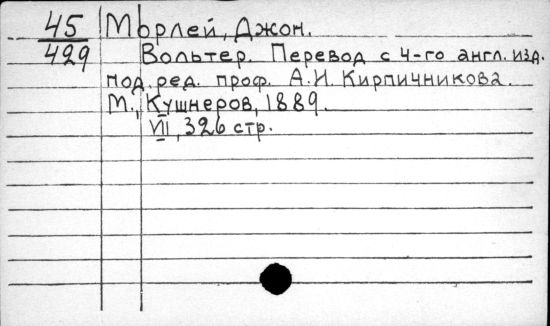 45 Морлей, Джон.
429 Вольтер. Перевод с 4-го англ. изд.
под ред. проф. А.И. Кирпичникова.
М., Кушнеров, 1889.
VII, 326 стр.